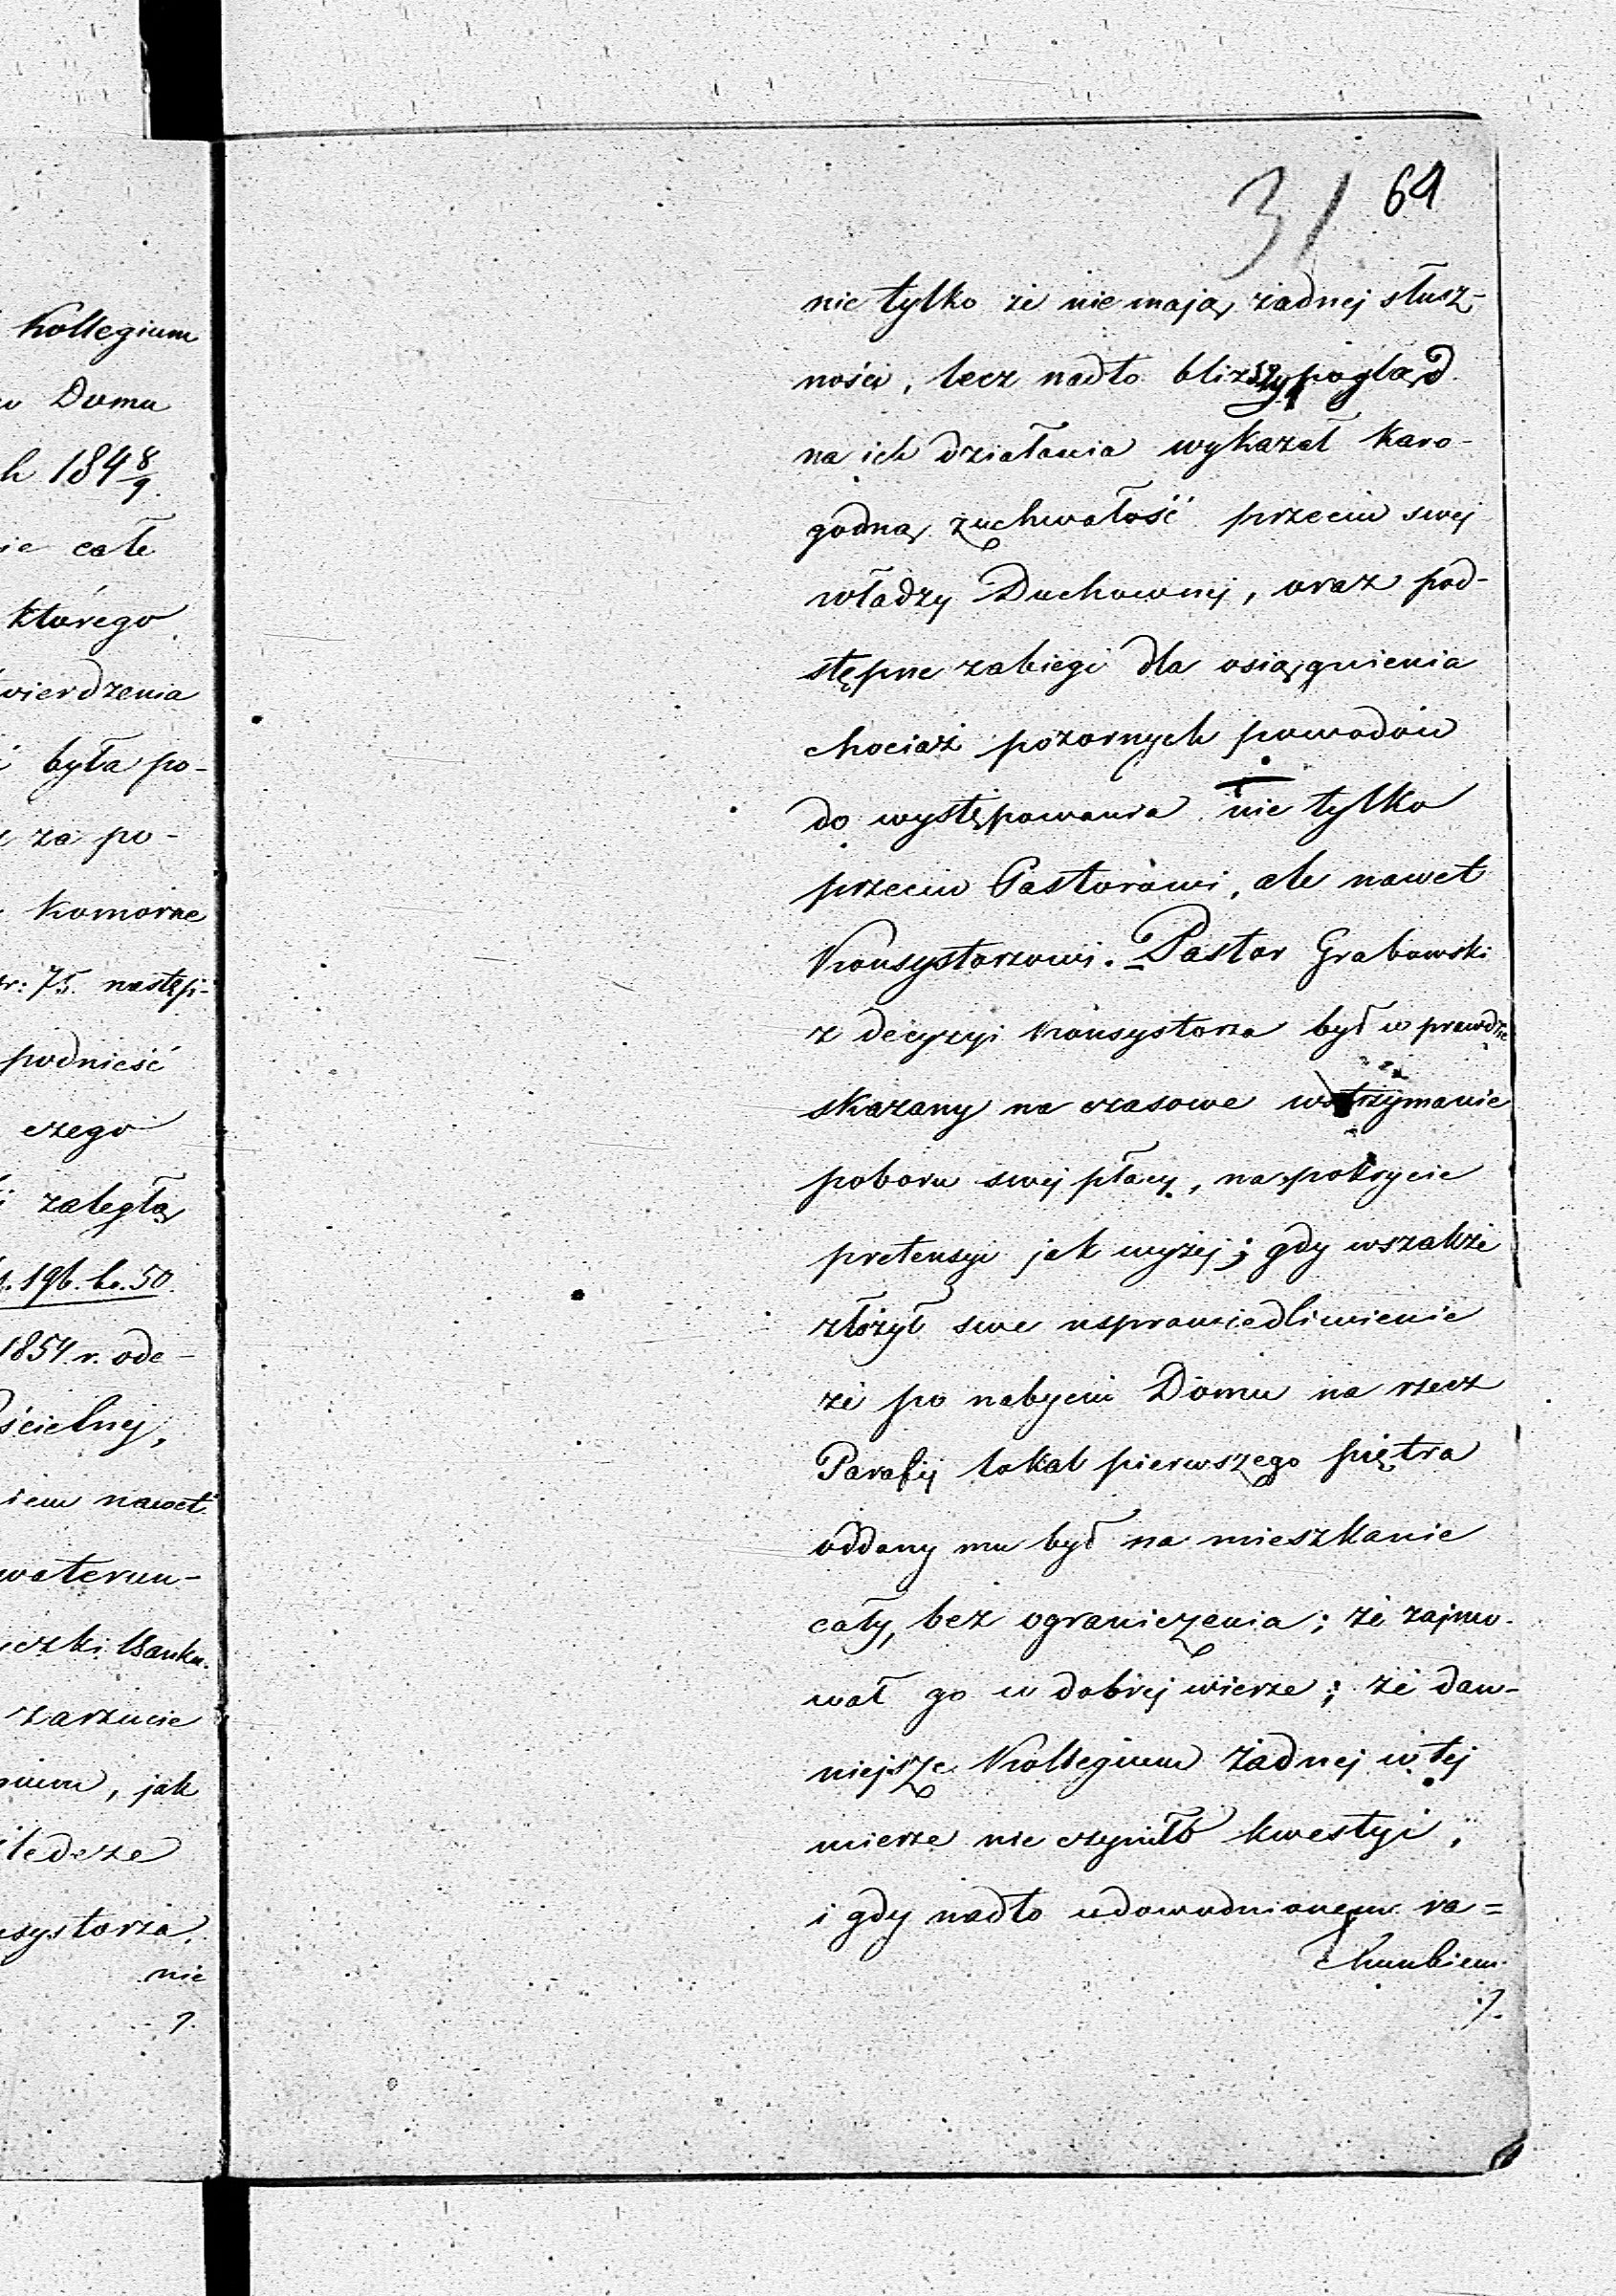 Kollegium
Domu
1848/9.
całe
którego
wierdzenia
była po-
za po-
Komorne
75. następ-
podnieść
czego
zaległą
196. k. 50.
1854 r. ode-
ścielnej,
iem nawet
waterun-
czki Banku
zarzucie
, jak
ledcze
systorza,
nie
/.
31 64
nie tylko że nie mają żadnej słusz-
ności, lecz nadto bliższy pogląd
na ich działania wykazał karo-
godną zuchwałość przeciw swej
władzy Duchownej, oraz pod-
stępne zabiegi dla osiągnienia
chociaż pozornych powodów
do występowania nie tylko
przeciw Pastorowi, ale nawet
Konsystorzowi. Pastor Grabowski
z decyzyi Konsystorza był w prawdzie
skazany na czasowe wstrzymanie
poboru swej płacy, na pokrycie
pretensyi jak wyżej; gdy wszakże
złożył swe usprawiedliwienie
że po nabyciu Domu na rzecz
Parafij lokal pierwszego piętra
oddany mu był na mieszkanie
cały, bez ograniczenia; że zajmo-
wał go w dobrej wierze; że daw-
niejsze Kollegium żadnej w tej
mierze nie czyniło kwestyi,
i gdy nadto udowodnionem ra=
chunkiem
/.